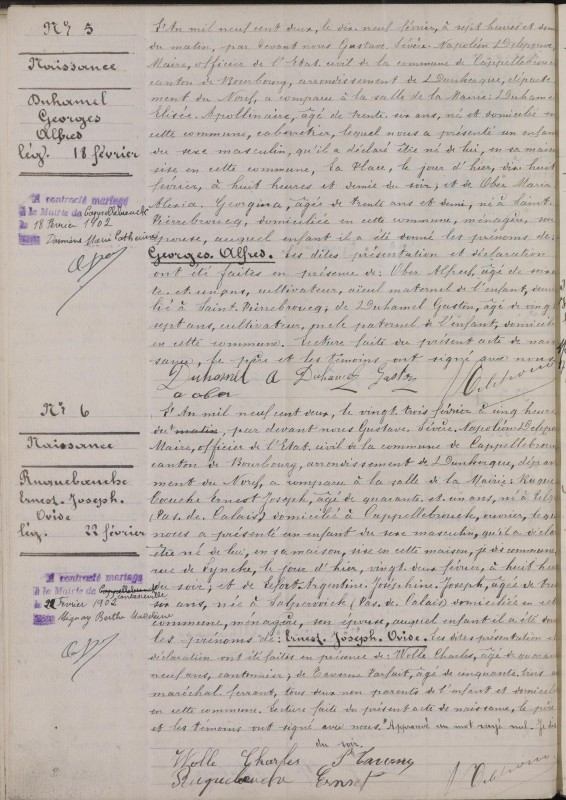 N° 5
Naissance
Duhamel
Georges
Alfred
lég. 18 février
A contracté mariage
à la Mairie de Cappellebrouck
le 18 février 1902
L'An mil neuf cent deux, le dix neuf février, à sept heures et demie
du matin, par devant nous Gustave
Maire, officier de l'Etat civil de la commune de Cappellebrouck
canton de Bourbourg, arrondissement de Dunkerque, départe-
ment du Nord, a comparu à la salle de la Mairie: Duhamel
Elisée Apollinaire, âgé de trente six ans, né et domicilié en
cette commune, cabaretier, lequel nous a présenté un enfant
du sexe masculin, qu'il a déclaré être né de lui, en sa maison
sise en cette commune, la Place, le jour d'hier, dix huit
février, à huit heures et demie du soir, et de Ober Maria
Alexia Georgina, âgée de trente ans et demi, née à Saint
Pierrebroucq, domiciliée en cette commune, ménagère, son
épouse, auquel enfant il a été donné les prénoms de
Georges Alfred. Les dites présentation et déclaration
ont été faites en présence de: Ober Alfred, âgé de soixan-
te et un ans, cultivateur, aïeul maternel de l'enfant, domi-
cilié à Saint Pierrebroucq; de Duhamel Gaston, âgé de vingt
sept ans, cultivateur, oncle paternel de l'enfant, domicilié
en cette commune. Lecture faite du présent acte de nais-
sance, le père et les témoins ont signé avec nous.
Duhamel A Duhamel Gaston
a ober
N° 6
Naissance
Ruquebouche
Ernest Joseph
Ovide
lég. 22 février
A contracté mariage
à la Mairie de
le 22 février 1902
L'An mil neuf cent deux, le vingt trois février à cinq heures
du matin, par devant nous Gustave
Maire, officier de l'Etat civil de la commune de Cappellebrouck
canton de Bourbourg, arrondissement de Dunkerque, départe-
ment du Nord, a comparu à la salle de la Mairie: Ruque-
bouche Ernest Joseph, âgé de quarante et un ans, né à
(Pas de Calais) domicilié à Cappellebrouck, ouvrier, lequel
nous a présenté un enfant du sexe masculin, qu'il a déclaré
être né de lui, en sa maison, sise en cette
rue de Lynck, le jour d'hier, vingt deux février, à huit heures
du soir, et de Lefort Argentine Joséphine Joseph, âgée de trente
six ans, née à (Pas de Calais) domiciliée en cette
commune, ménagère, son épouse, auquel enfant il a été donné
les prénoms de: Ernest Joseph Ovide. Les dites présentation et
déclaration ont été faites en présence de: Wolle Charles, âgé de quarante
neuf ans, cantonnier; de Parfait, âgé de cinquante trois ans
maréchal ferrant, tous deux non parents de l'enfant et domiciliés
en cette commune. Lecture faite du présent acte de naissance, le père
et les témoins ont signé avec nous. Approuvé un mot rayé nul.
du soir.
Wolle Charles
Ruquebouche Ernest